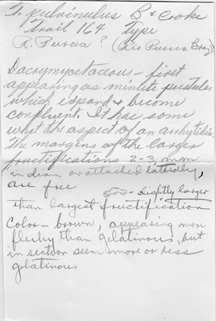 T. pulvinulus B & Cooke
Trail 164 type
R. Purus? (
Dacrymycetaceous - first
appearing as minute pustules
which expand & become
confluent. It has some
what the aspect of an arrhytidia.
The margins of the larger
fructifications 2-3 mm
in diam or attached laterally,
are free
slightly larger
than largest fructification
Color - brown, appearing more
fleshy than gelatinous, but
in section seem more or less
gelatinous